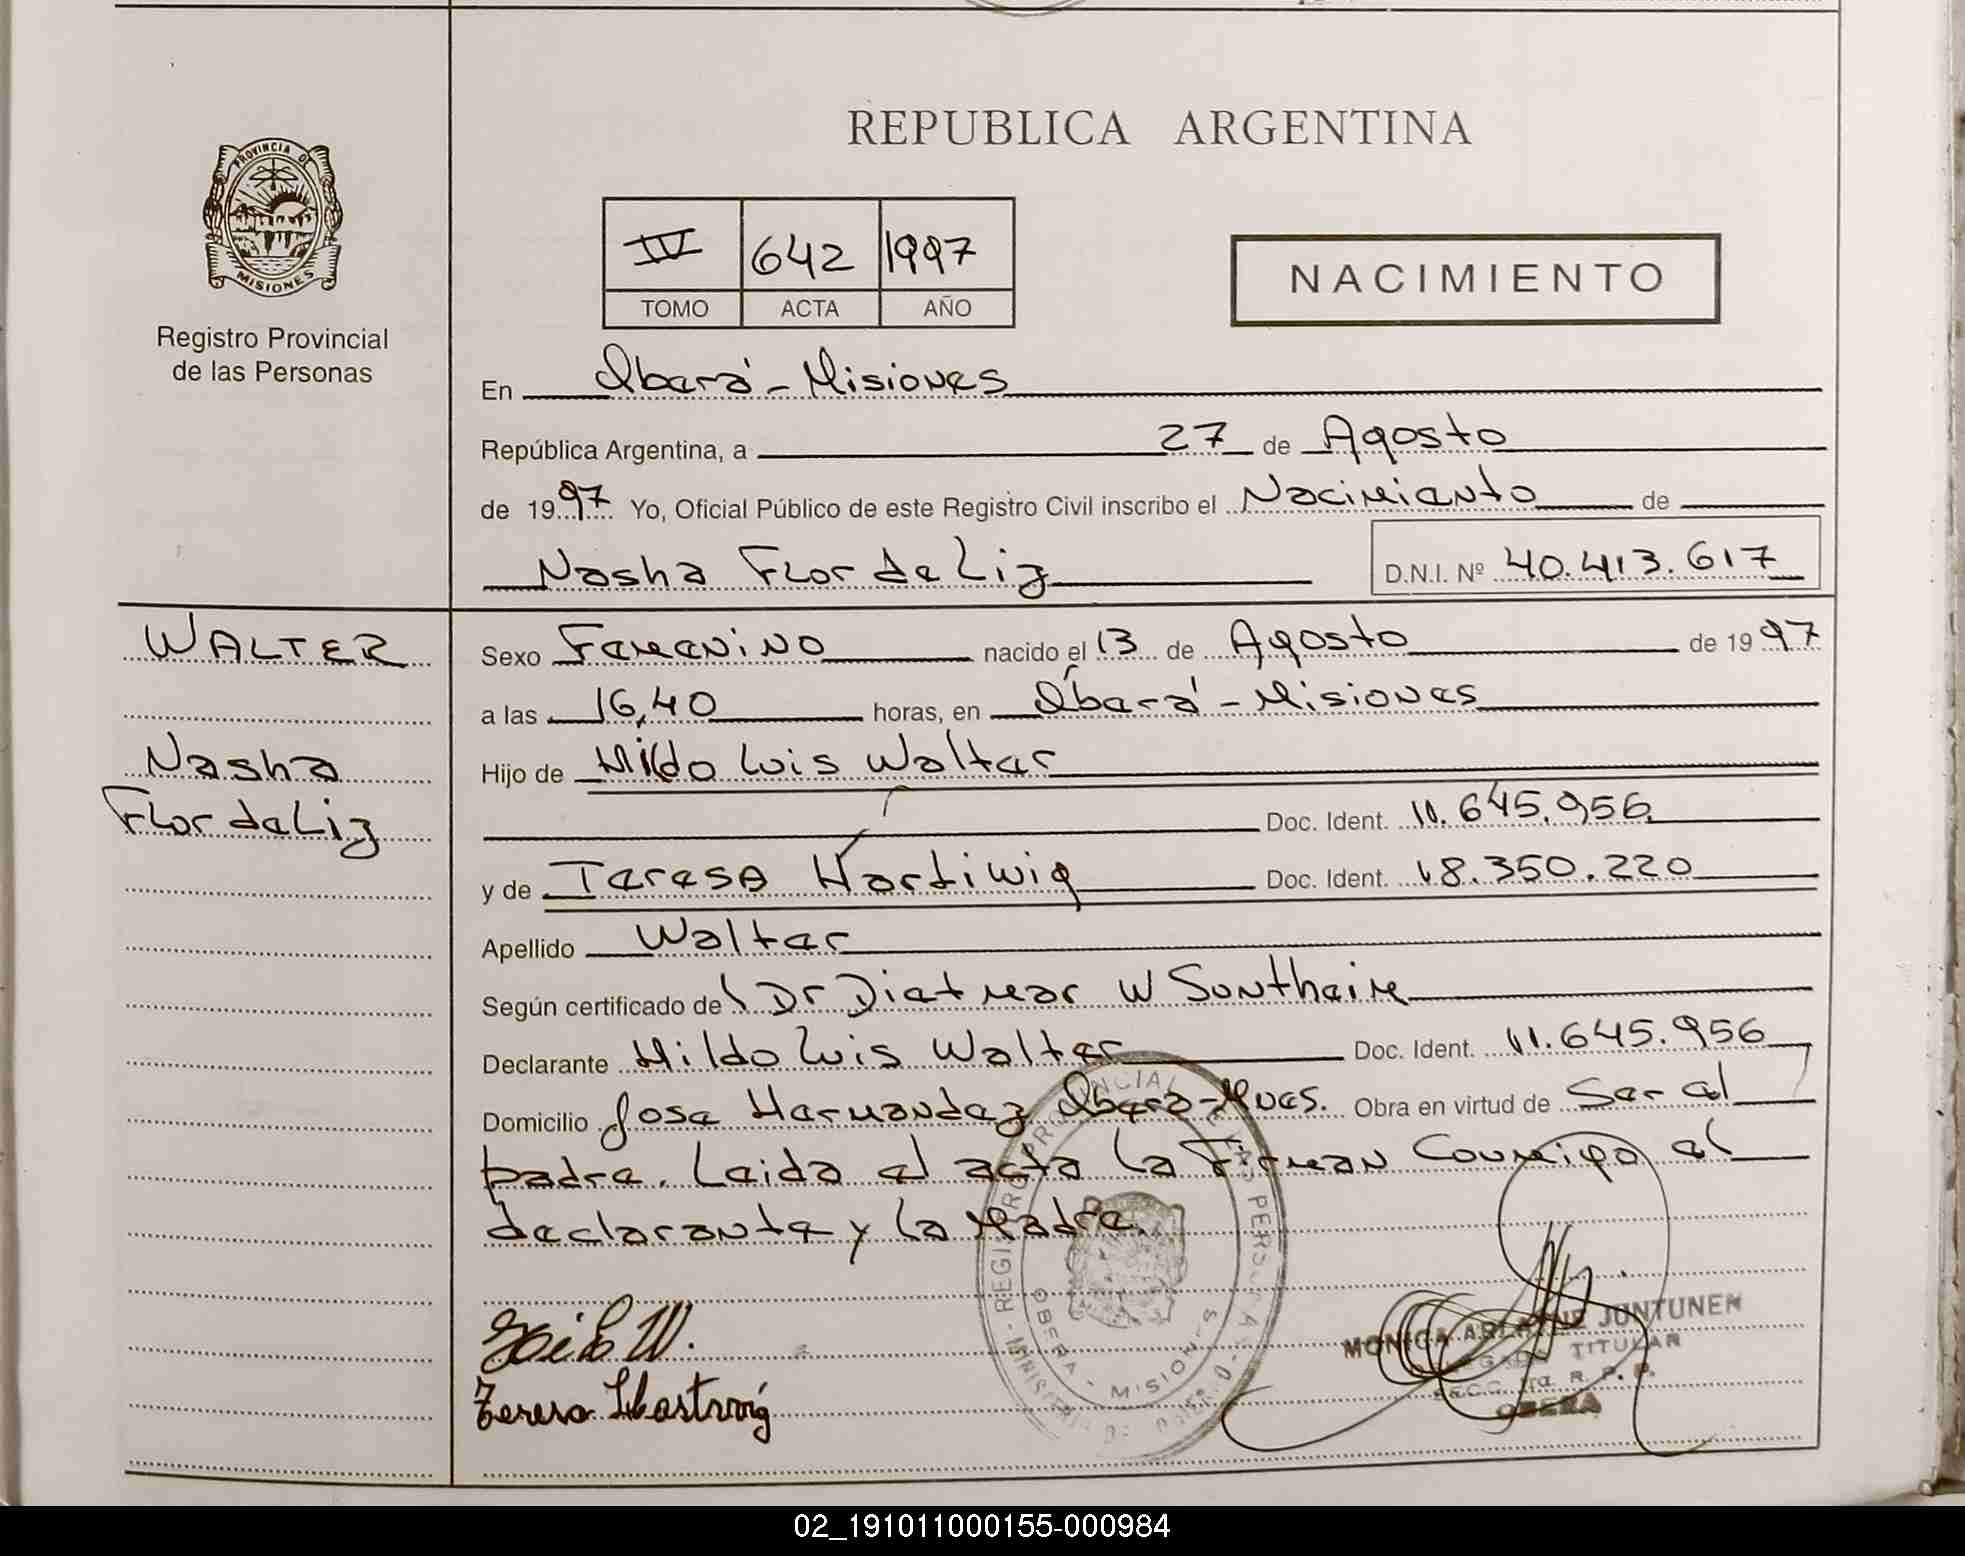 REPUBLICA ARGENTINA
PROVINCIA DE
MISIONES
Registro Provincial
de las Personas
IV 642 1997
TOMO ACTA AÑO
NACIMIENTO
En Oberá - Misiones
República Argentina, a 27 de Agosto
de 1997 Yo, Oficial Público de este Registro Civil inscribo el Nacimiento de
Nasha Flor de Liz D.N.I. Nº 40.413.617
WALTER
Nasha
Flor de Liz
Sexo Femenino nacido el 13 de Agosto de 1997
a las 16,40 horas, en Oberá - Misiones
Hijo de Hildo Luis Walter
Doc. Ident. 11.645.956
y de Teresa Hartiwig Doc. Ident. 18.350.220
Apellido Walter
Según certificado de Dr Dietmar W Sontheim
Declarante Hildo Luis Walter Doc. Ident. 11.645.956
Domicilio Jose Hernandez Oberá - Mnes. Obra en virtud de Ser el
padre. Leida el acta la Firman Conmigo el
declarante y la Madre.
Teresa
REGISTRO PROVINCIAL DE LAS PERSONAS
OBERA - MISIONES
MONICA JUNTUNEN
TITULAR
R. P. P.
OBERA
02_191011000155-000984